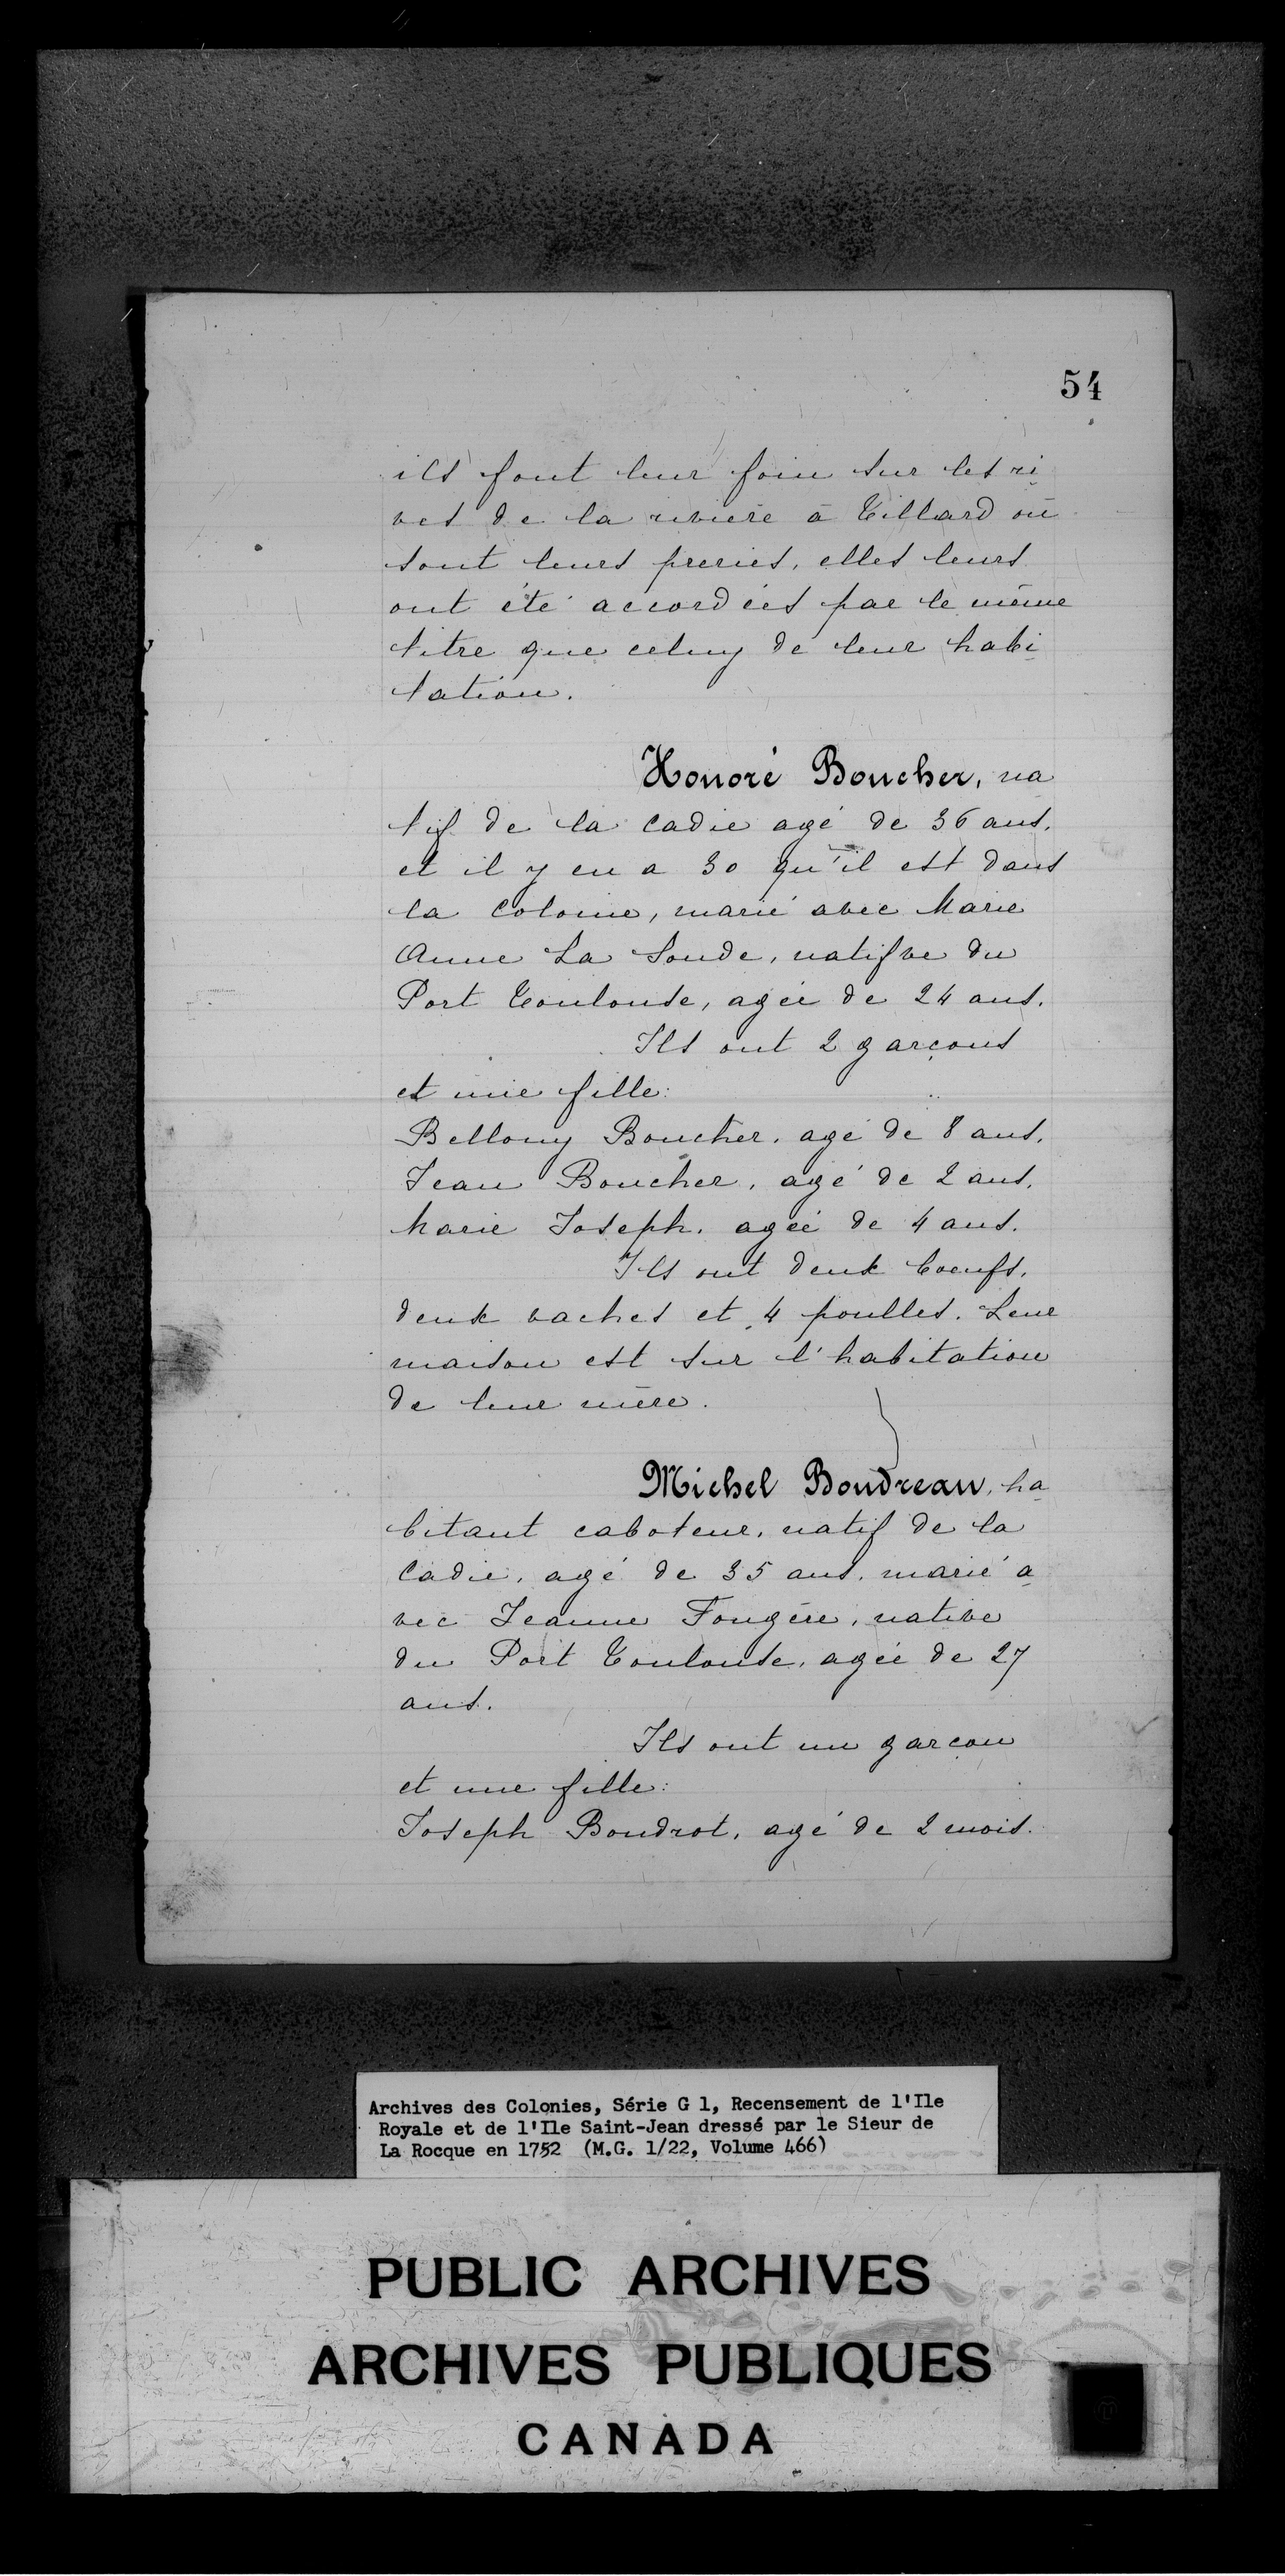 54
ils font leur foin sur les ri
ves de la riviere à Tillard où
sont leurs preries, elles leurs
ont été accordées par le même
titre que celuy de leur habi
tation.
Honoré Boucher, na
tif de la Cadie agé de 36 ans,
et il y en a 30 qu'il est dans
la Colonie, marié avec Marie
Anne La Sonde, natifve du
Port Toulouse, agée de 24 ans.
Ils ont 2 garçons
et une fille:
Bellony Boucher, agé de 8 ans,
Jean Boucher, agé de 2 ans,
Marie Joseph, agée de 4 ans.
Ils ont deux boeufs,
deux vaches et 4 poulles. Leur
maison est sur l'habitation
de leur mère.
Michel Boudreau, ha
bitant caboteur, natif de la
Cadie, agé de 35 ans, marié a
vec Jeanne Fougère, native
du Port Toulouse, agée de 27
ans.
Ils ont un garçon
et une fille:
Joseph Boudrot, agé de 2 mois.
Archives des Colonies, Série G 1, Recensement de l'Ile
Royale et de l'Ile Saint-Jean dressé par le Sieur de
La Rocque en 1752 (M.G. 1/22, Volume 466)
PUBLIC ARCHIVES
ARCHIVES PUBLIQUES
CANADA